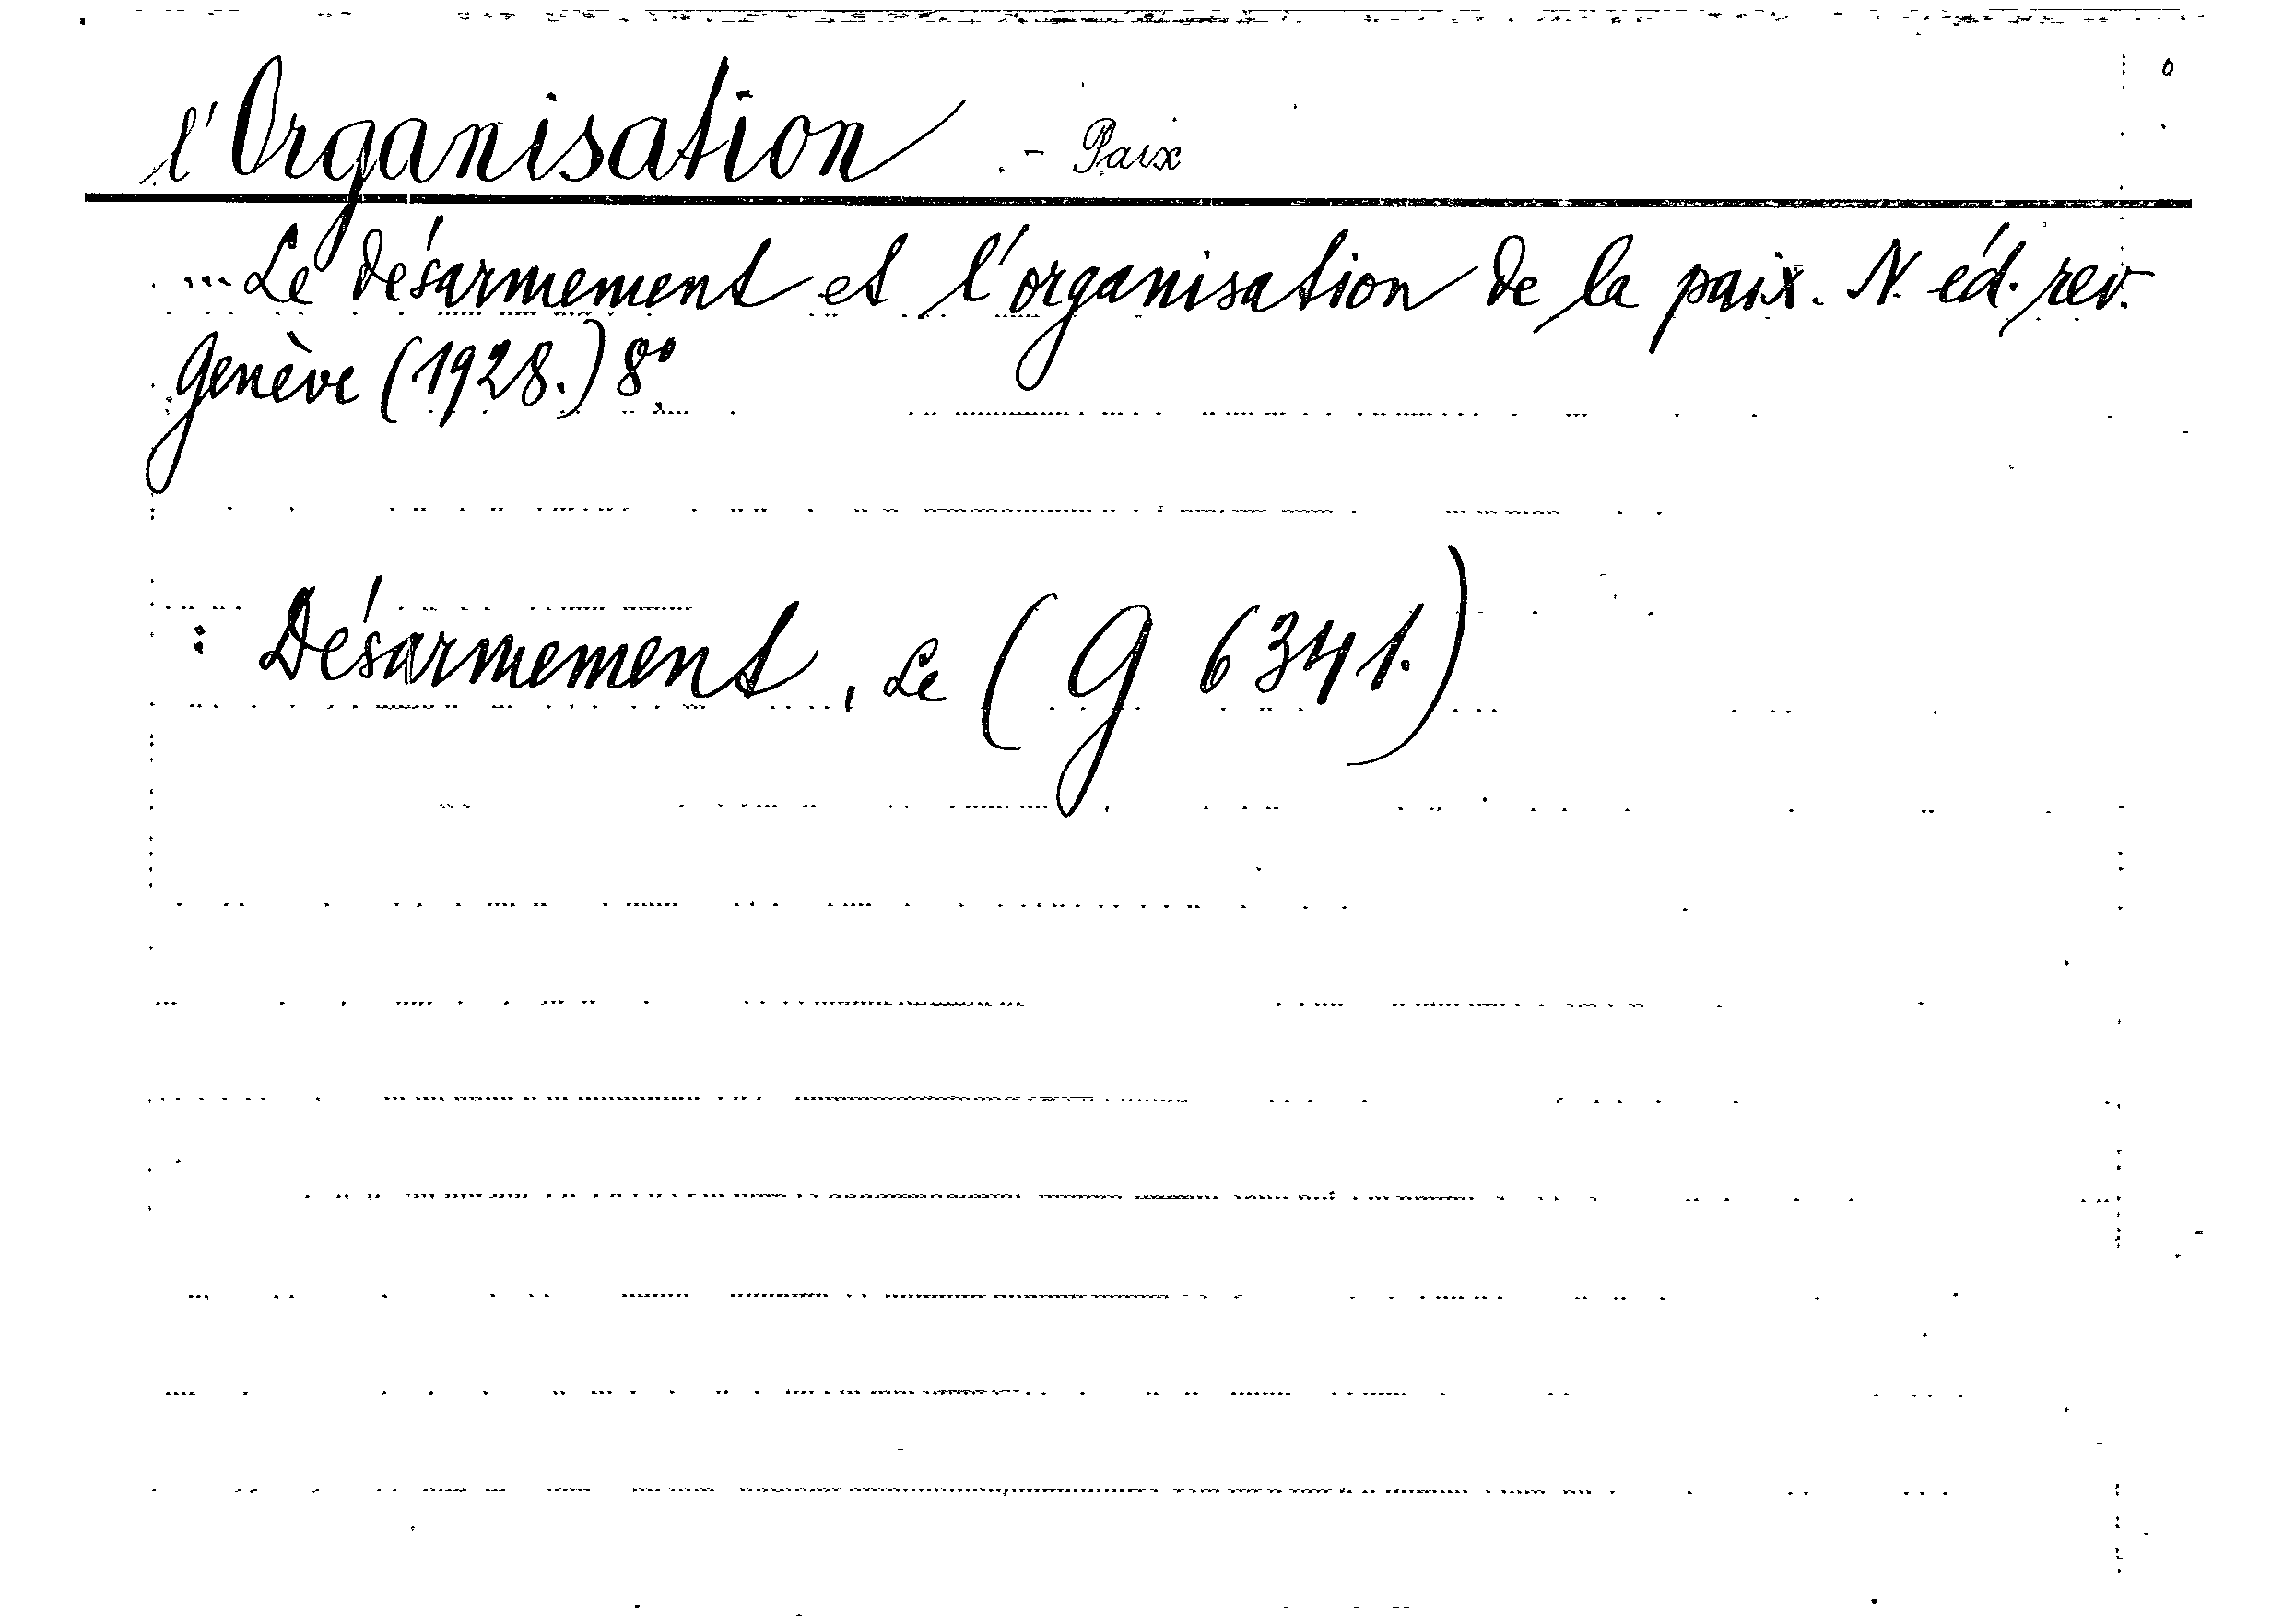 l'Organisation - Paix
... Le désarmement et l'organisation de la paix. N. éd. rev.
Genève (1928.) 8°.
: Désarmement, Le (G 6341.)